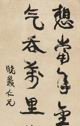 想當年金
气吞萬里